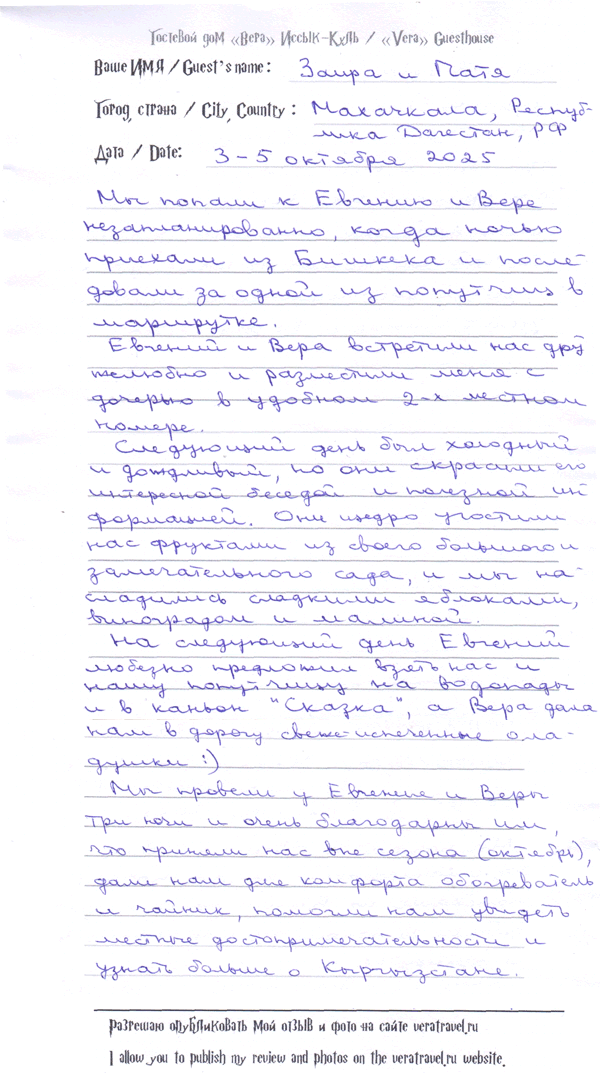 Гостевой дом «Вера» Иссык-Куль / «Vera» Guesthouse
Ваше ИМЯ / Guest's name: Заира и Патя
Город, страна / City, Country: Махачкала, Респуб-
лика Дагестан, РФ
Дата / Date: 3-5 октября 2025
Мы попали к Евгению и Вере
незапланированно, когда ночью
приехали из Бишкека и после-
довали за одной из попутчиц в
маршрутке.
Евгений и Вера встретили нас дру-
желюбно и разместили меня с
дочерью в удобном 2-х местном
номере.
Следующий день был холодный
и дождливый, но они скрасили его
интересной беседой и полезной ин-
формацией. Они щедро угостили
нас фруктами из своего большого и
замечательного сада, и мы на-
сладились сладкими яблоками,
виноградом и малиной.
На следующий день Евгений
любезно предложил взять нас и
нашу попутчицу на водопады
и в каньон "Сказка", а Вера дала
нам в дорогу свеже-испеченные ола-
душки :)
Мы провели у Евгение и Веры
три ночи и очень благодарны им,
что приняли нас вне сезона (октябрь),
дали нам для комфорта обогреватель
и чайник, помогли нам увидеть
местные достопримечательности и
узнать больше о Кыргызстане.
Разрешаю опубликовать мой отзыв и фото на сайте veratravel.ru
I allow you to publish my review and photos on the veratravel.ru website.